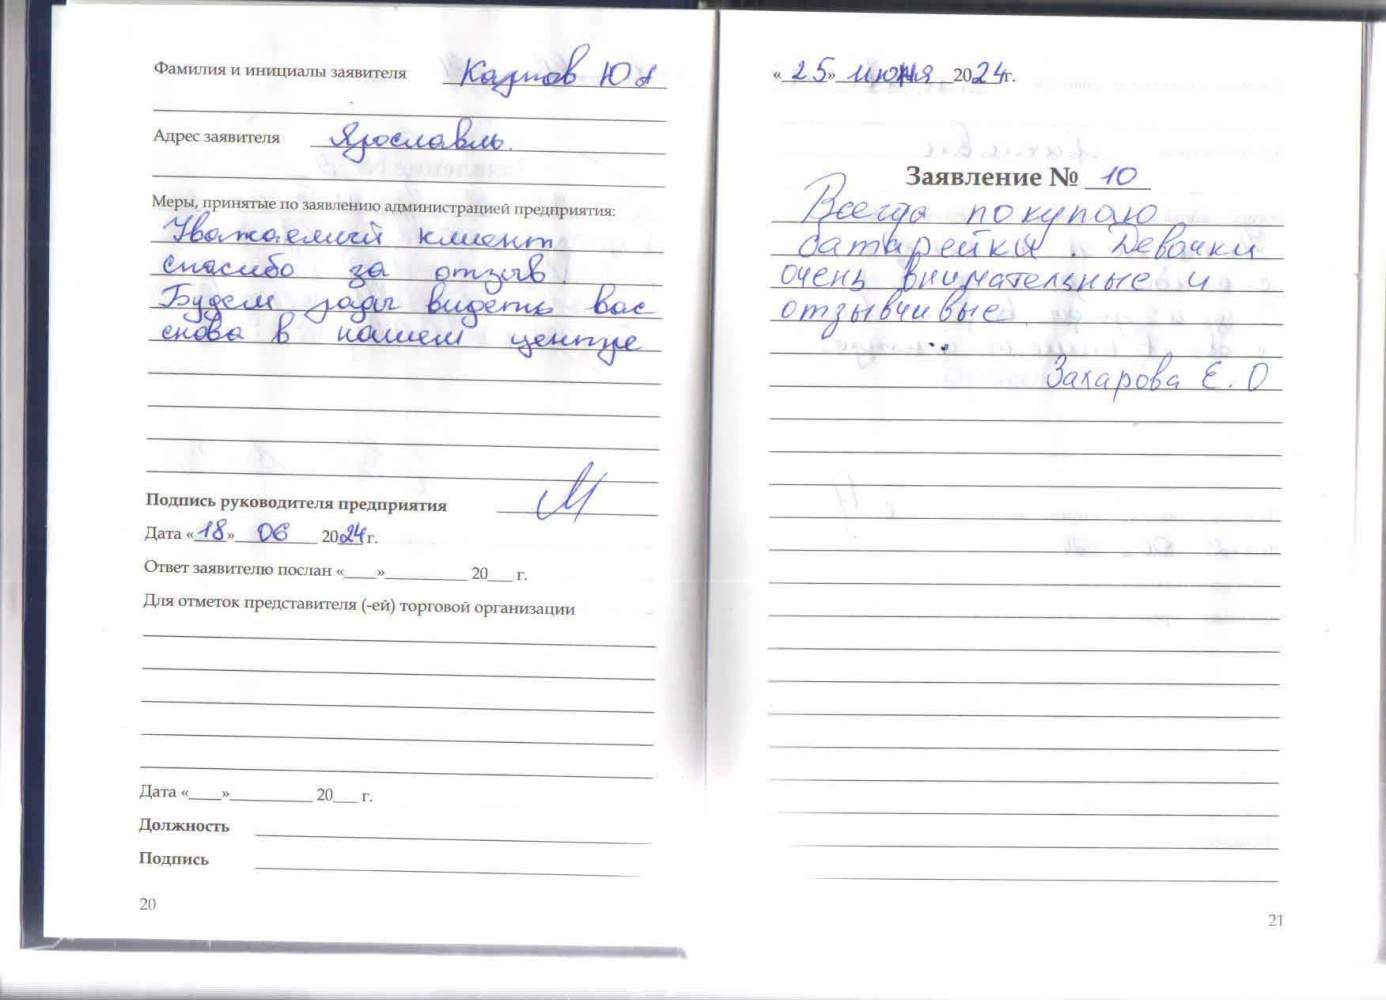 Фамилия и инициалы заявителя Ю А
Адрес заявителя Ярославль.
Меры, принятые по заявлению администрацией предприятия:
Уважаемый клиент
спасибо за отзыв!
Будем рады видеть вас
снова в нашем центре
Подпись руководителя предприятия
Дата «18» 06 2024 г.
Ответ заявителю послан «____»__________ 20___ г.
Для отметок представителя (-ей) торговой организации
Дата «____»__________ 20___ г.
Должность
Подпись
20
«25» июня 2024г.
Заявление № 10
Всегда покупаю
батарейки. Девочки
очень внимательные и
отзывчивые.
Захарова Е. О
21